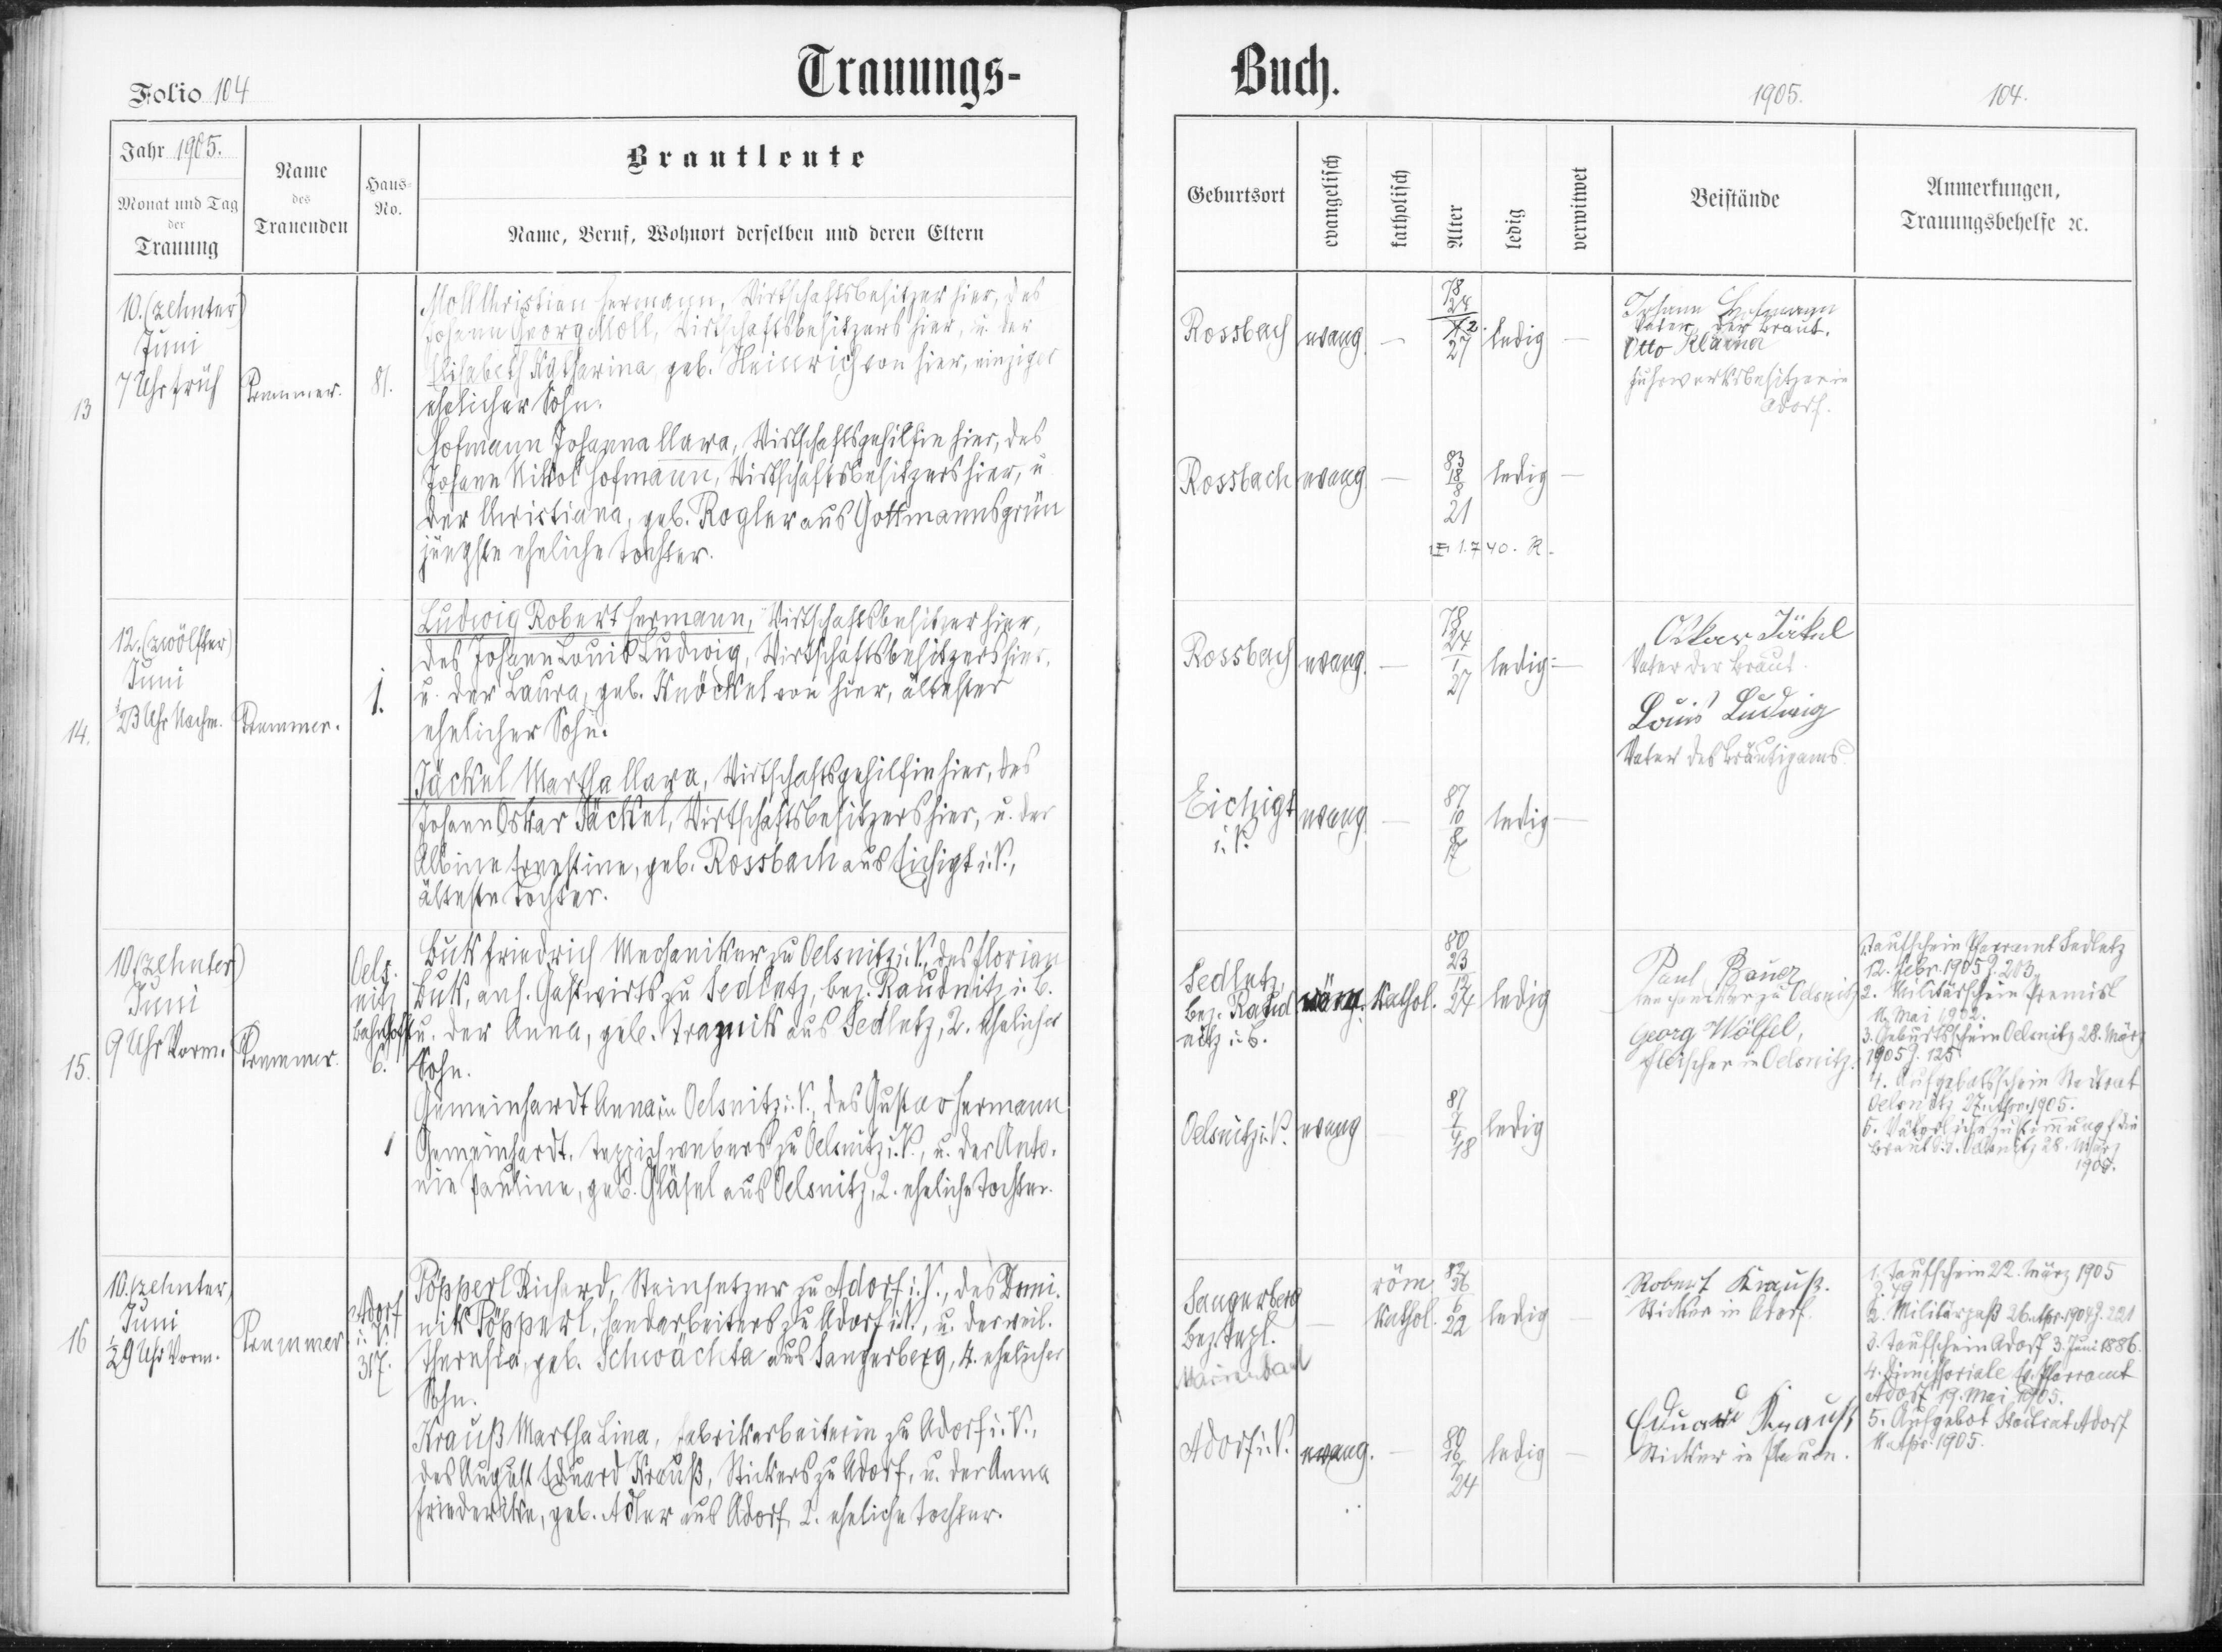 Folio 104
Trauungs-
Buch.
1905.
104.
Jahr 1905.
Monat und Tag
der
Trauung
Name
des
Trauenden
Haus-
No.
Brautleute
Name, Beruf, Wohnort derselben und deren Eltern
Geburtsort
evangelisch
katholisch
Alter
ledig
verwitwet
Beistände
Anmerkungen,
Trauungsbehelfe ꝛc.
13
10. (zehnter)
Juni
7 Uhr früh
81.
Moll Christian Hermann, Wirtschaftsbesitzer hier, des
Johann Georg Moll, Wirtschaftsbesitzers hier, u. der
Elisabeth Katharina, geb. Heinrich von hier, einziger
ehelicher Sohn.
Hofmann Johanna Clara, Wirtschaftsgehilfin hier, des
Johann Nikol Hofmann, Wirtschaftsbesitzers hier, u
der Christiana, geb. Rogler aus Gottmannsgrün
jüngste eheliche Tochter.
Rossbach evang. — 78 27 ledig —
Johann Hofmann
Vater der Braut.
Otto
Fuhrwerksbesitzer in
Adorf.
Rossbach evang. — 83 18 8 21 ledig —
1.7 40. R.
14.
12. (zwölfter)
Juni
1/2 3 Uhr Nachm.
1.
Ludwig Robert Hermann, Wirtschaftsbesitzer hier,
des Johann Louis Ludwig, Wirtschaftsbesitzers hier,
u. der Laura, geb. Knöckel von hier, ältester
ehelicher Sohn.
Jäckel Martha Clara, Wirtschaftsgehilfin hier, des
Johann Oskar Jäckel, Wirtschaftsbesitzers hier, u. der
Albine Ernestine, geb. Rossbach aus Eichigt i. V.,
älteste Tochter.
Rossbach evang. — 78 24 1 27 ledig —
Oskar Jäkel
Vater der Braut.
Louis Ludwig
Vater des Bräutigams.
Eichigt
i. V.
evang. — 87 10 8 17 ledig —
15.
10. (zehnter)
Juni
9 Uhr Vorm.
Oels-
nitz
Bahnhofst
6.
1
Buk Friedrich Mechaniker zu Oelsnitz i. V., des Florian
Buk, ans. Gastwirts zu Sedletz, bez. Raudnitz i. B.
u. der Anna, geb. aus Sedletz, 2. ehelicher
Sohn.
Gemeinhardt Anna in Oelsnitz i. V., des Gustav Hermann
Gemeinhardt, Teppichwebers zu Oelsnitz i. V., u. der Anto-
nie Pauline, geb. Gläsel aus Oelsnitz, 2. eheliche Tochter.
Sedletz,
bez. Raud-
nitz i. B.
röm. kathol. 80 23 12 24 ledig
Paul Bauer
Mechaniker zu Oelsnitz
Georg Wölfel,
Fleischer in Oelsnitz.
1. Taufschein Pfarramt Sedletz
12. Febr. 1905 Z. 203.
2. Militärschein
11. Mai 1902.
3. Geburtsschein Oelsnitz 28. März
1905 Z. 125.
4. Aufgebotsschein Stadtrat
Oelsnitz 27. Apr. 1905.
5. Väterliche Zustimmung f. die
Braut d. d. Oelsnitz 28. März
1905.
Oelsnitz i. V. evang. — 87 7 4 18 ledig
16
10. zehnter,
Juni
1/2 9 Uhr Vorm.
Adorf
i. V.
317.
Pöpperl Richard, Steinsetzer zu Adorf i. V., des Domi-
nik Pöpperl, Handarbeiters zu Adorf i. V., u. der weil.
Theresia, geb. Schwächta aus Sangerberg, 4. ehelicher
Sohn.
Krauß Martha Lina, Fabrikarbeiterin zu Adorf i. V.,
des August Eduard Krauß, Stickers zu Adorf, u. der Anna
Friederike, geb. Adler aus Adorf 2. eheliche Tochter.
Sangerberg
Bez. Tepl.
Marienbad
—
röm.
kathol.
82 26 6 22 ledig —
Robert Krauß.
Sticker in Adorf.
1. Taufschein 22. März 1905
Z. 79
2. Militärpaß 26. Apr. 1904 Z. 221
3. Taufschein Adorf 3. Juni 1886.
4. Dimissoriale Ev. Pfarramt
Adorf 19. Mai 1905.
5. Aufgebot Stadtrat Adorf
11. Apr. 1905.
Adorf i. V. evang. — 80 16 7 24 ledig —
Eduard Krauß
Sticker in